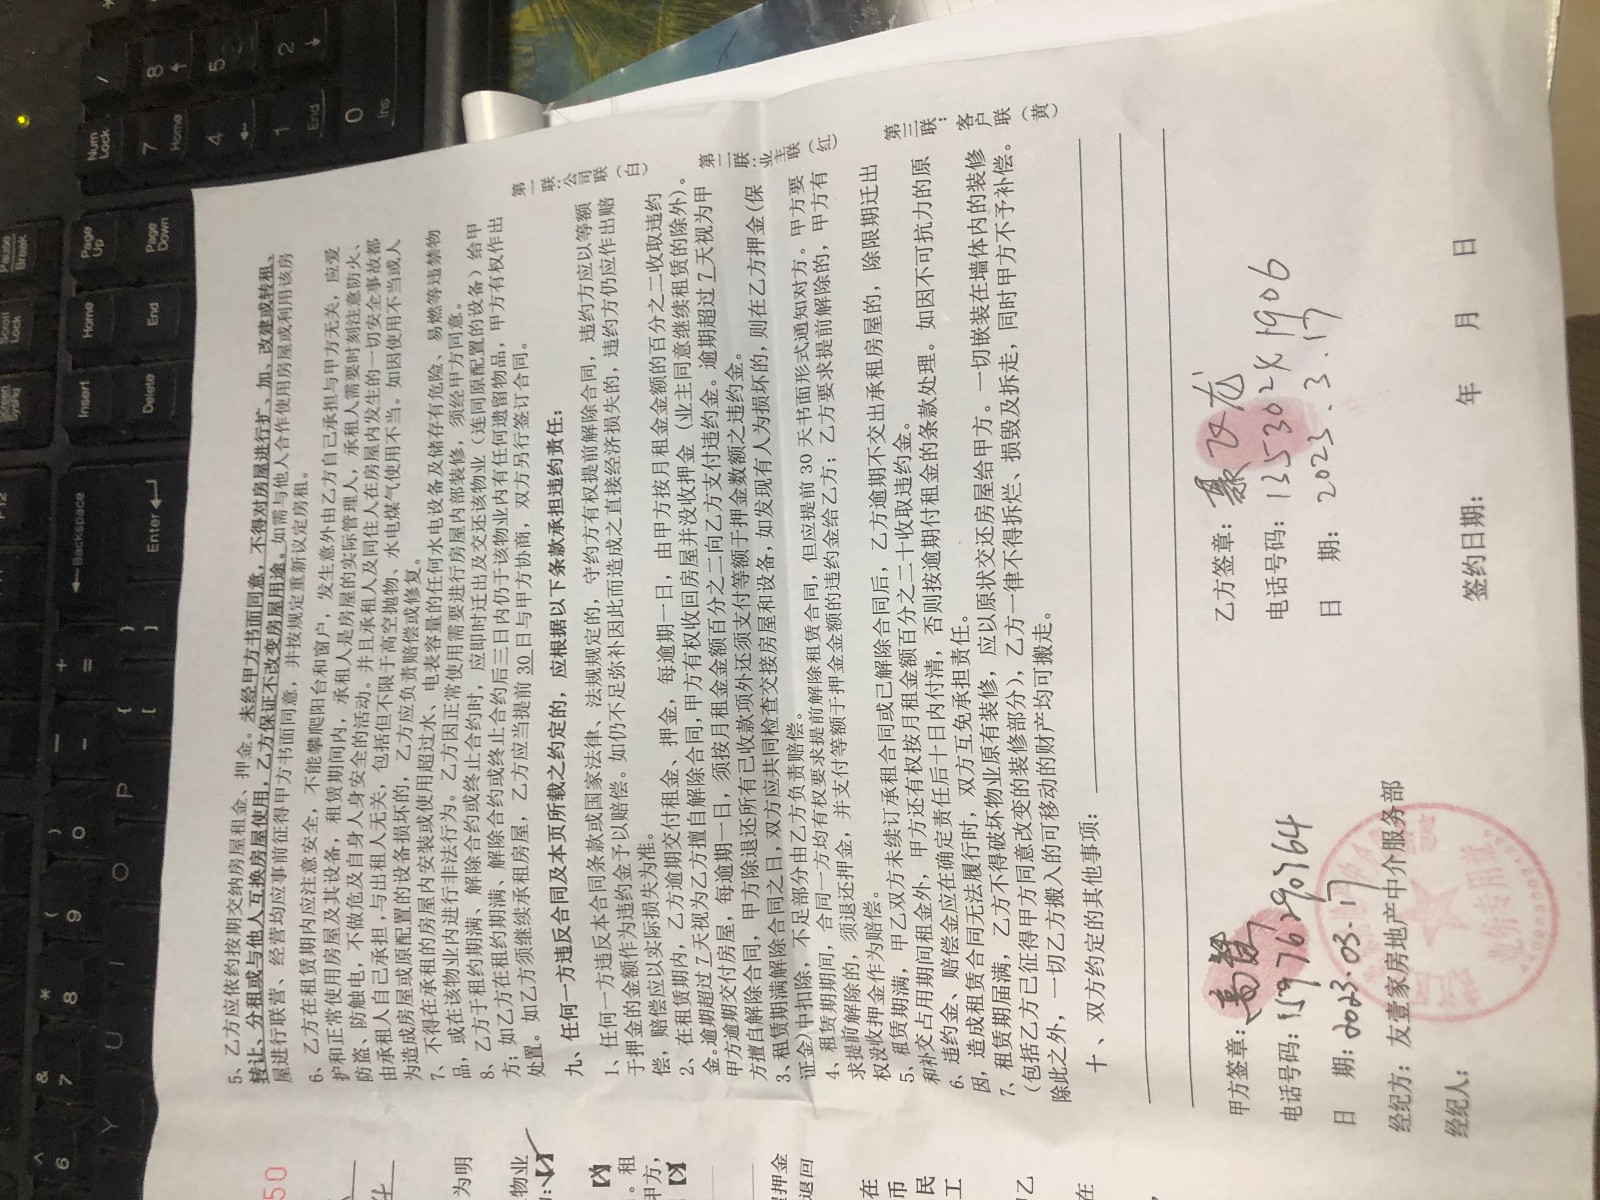 5、乙方应依约按期交纳房屋租金、押金。未经甲方书面同意，不得对房屋进行扩、加、改建或转租、
转让、分租或与他人互换房屋使用，乙方保证不改变房屋用途。如需与他人合作使用房屋或利用该房
屋进行联营、经营均应事前征得甲方书面同意，并按规定重新议定房租。
6、乙方在租赁期内应注意安全，不能攀爬阳台和窗户，发生意外由乙方自己承担与甲方无关，应爱
护和正常使用房屋及其设备，租赁期间内，承租人是房屋的实际管理人，承租人需要时刻注意防火、
防盗、防触电，不做危及自身人身安全的活动。并且承租人及同住人在房屋内发生的一切安全事故都
由承租人自己承担，与出租人无关，包括但不限于高空抛物、水电煤气使用不当。如因使用不当或人
为造成房屋或原配置的设备损坏的，乙方应负责赔偿或修复。
7、不得在承租的房屋内安装或使用超过水、电表容量的任何水电设备及储存有危险、易燃等违禁物
品，或在该物业内进行非法行为。乙方因正常使用需要进行房屋内部装修，须经甲方同意。
8、乙方于租约期满、解除合约或终止合约时，应即时迁出及交还该物业（连同原配置的设备）给甲
方；如乙方在租约期满、解除合约或终止合约后三日内仍于该物业内有任何遗留物品，甲方有权作出
处置。如乙方须继续承租房屋，乙方应当提前 30 日与甲方协商，双方另行签订合同。
九、任何一方违反合同及本页所载之约定的，应根据以下条款承担违约责任：
1、任何一方违反本合同条款或国家法律、法规规定的，守约方有权提前解除合同，违约方应以等额
于押金的金额作为违约金予以赔偿。如仍不足弥补因此而造成之直接经济损失的，违约方仍应作出赔
偿，赔偿应以实际损失为准。
2、在租赁期内，乙方逾期交付租金、押金，每逾期一日，由甲方按月租金金额的百分之二收取违约
金。逾期超过 7 天视为乙方擅自解除合同，甲方有权收回房屋并没收押金（业主同意继续租赁的除外）。
甲方逾期交付房屋，每逾期一日，须按月租金金额百分之二向乙方支付违约金。逾期超过 7 天视为甲
方擅自解除合同，甲方除退还所有已收款项外还须支付等额于押金数额之违约金。
3、租赁期满解除合同之日，双方应共同检查交接房屋和设备，如发现有人为损坏的，则在乙方押金（保
证金）中扣除，不足部分由乙方负责赔偿。
4、租赁期期间，合同一方均有权要求提前解除租赁合同，但应提前 30 天书面形式通知对方。甲方要
求提前解除的，须退还押金，并支付等额于押金金额的违约金给乙方；乙方要求提前解除的，甲方有
权没收押金作为赔偿。
5、租赁期满，甲乙双方未续订承租合同或已解除合同后，乙方逾期不交出承租房屋的，除限期迁出
和补交占用期间租金外，甲方还有权按月租金额百分之二十收取违约金。
6、违约金、赔偿金应在确定责任后十日内付清，否则按逾期付租金的条款处理。如因不可抗力的原
因，造成租赁合同无法履行时，双方互免承担责任。
7、租赁期届满，乙方不得破坏物业原有装修，应以原状交还房屋给甲方。一切嵌装在墙体内的装修
（包括乙方已征得甲方同意改变的装修部分），乙方一律不得拆烂、损毁及拆走，同时甲方不予补偿。
除此之外，一切乙方搬入的可移动的财产均可搬走。
十、双方约定的其他事项：
第一联：公司联（白）
第二联：业主联（红）
第三联：客户联（黄）
甲方签章：
电话号码：15976290764
日 期：2023.03.17
经纪方：友壹家房地产中介服务部
经纪人：
业务专用章
乙方签章：
电话号码：
日 期：2023.3.17
签约日期： 年 月 日
50
为明
物业
租
甲方，
押金
退回
在
币
民
工
乙
在
Num Lock
/
7 Home
8
4
5
1 End
2
0 Ins
Pause Break
Page Up
Page Down
Scroll Lock
Home
End
Insert
Delete
Backspace
Enter
F12
6
7
8
9
0
Y
U
I
O
P